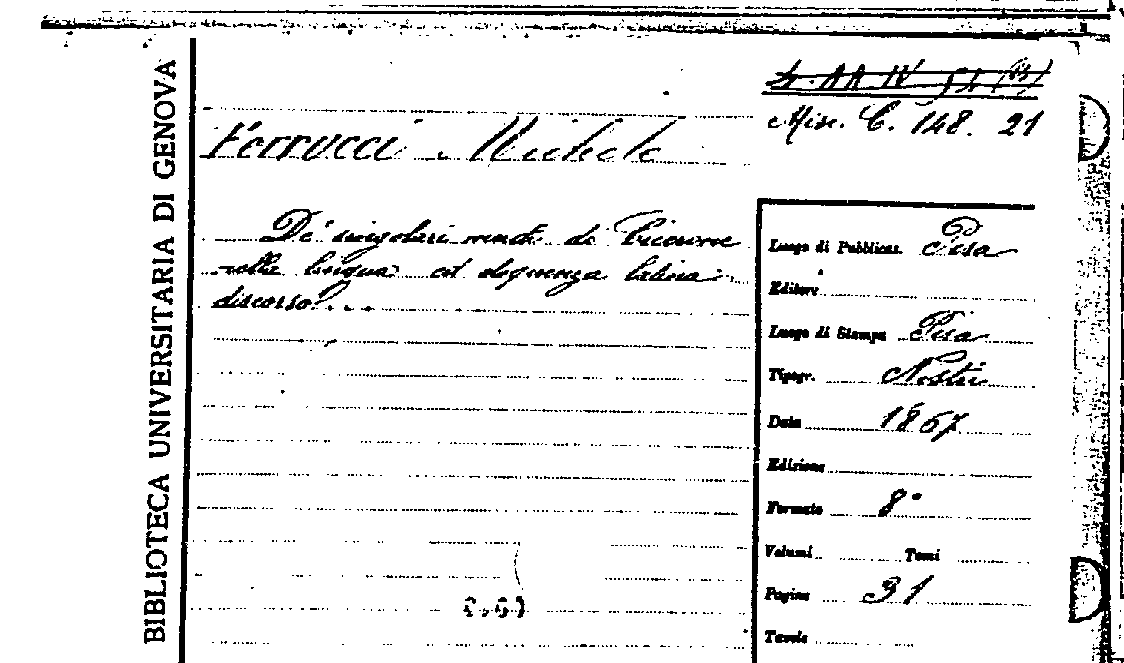 BIBLIOTECA UNIVERSITARIA DI GENOVA
Misc. C. 148. 21
Ferrucci Michele
De' singolari meriti di Cicerone
nella lingua ed eloquenza latina:
discorso...
Luogo di Pubblicaz. Pisa
Editore
Luogo di Stampa Pisa
Tipogr. Nistri
Data 1867
Edizione
Formato 8°
Volumi Tomi
Pagine 31
Tavole